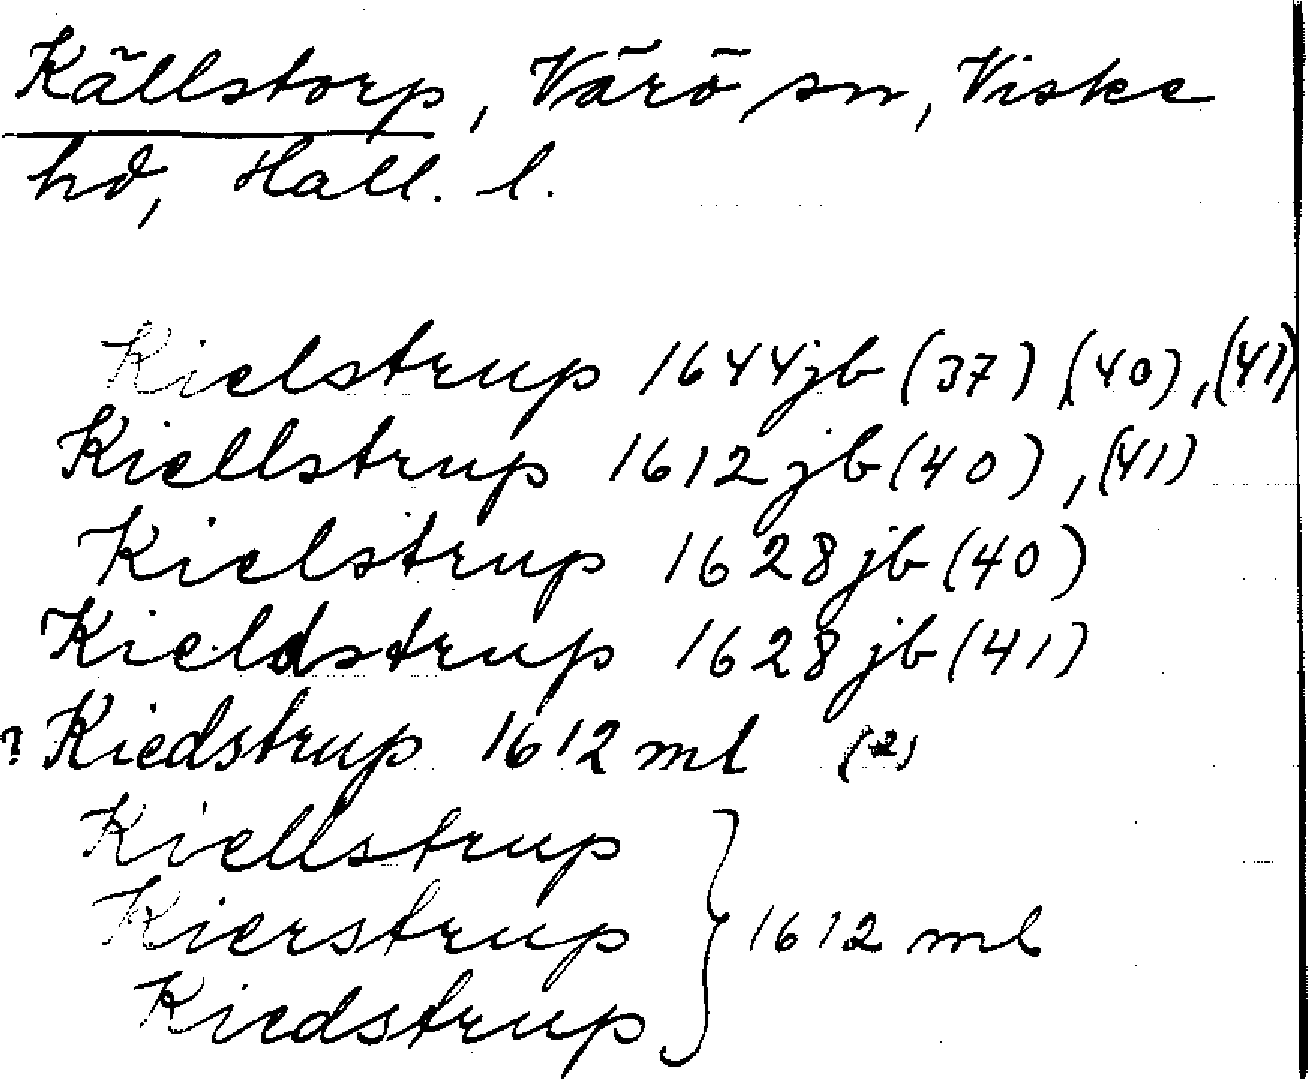 Källstorp, Värö sn, Viske
hd, Hall. l.
Kielstrup 1644 jb (37), (40), (41)
Kiellstrup 1612 jb (40), (41)
Kielstrup 1628 jb (40)
Kieldstrup 1628 jb (41)
? Kiedstrup 1612 ml (2)
Kiellstrup
Kierstrup } 1612 ml
Kiedstrup